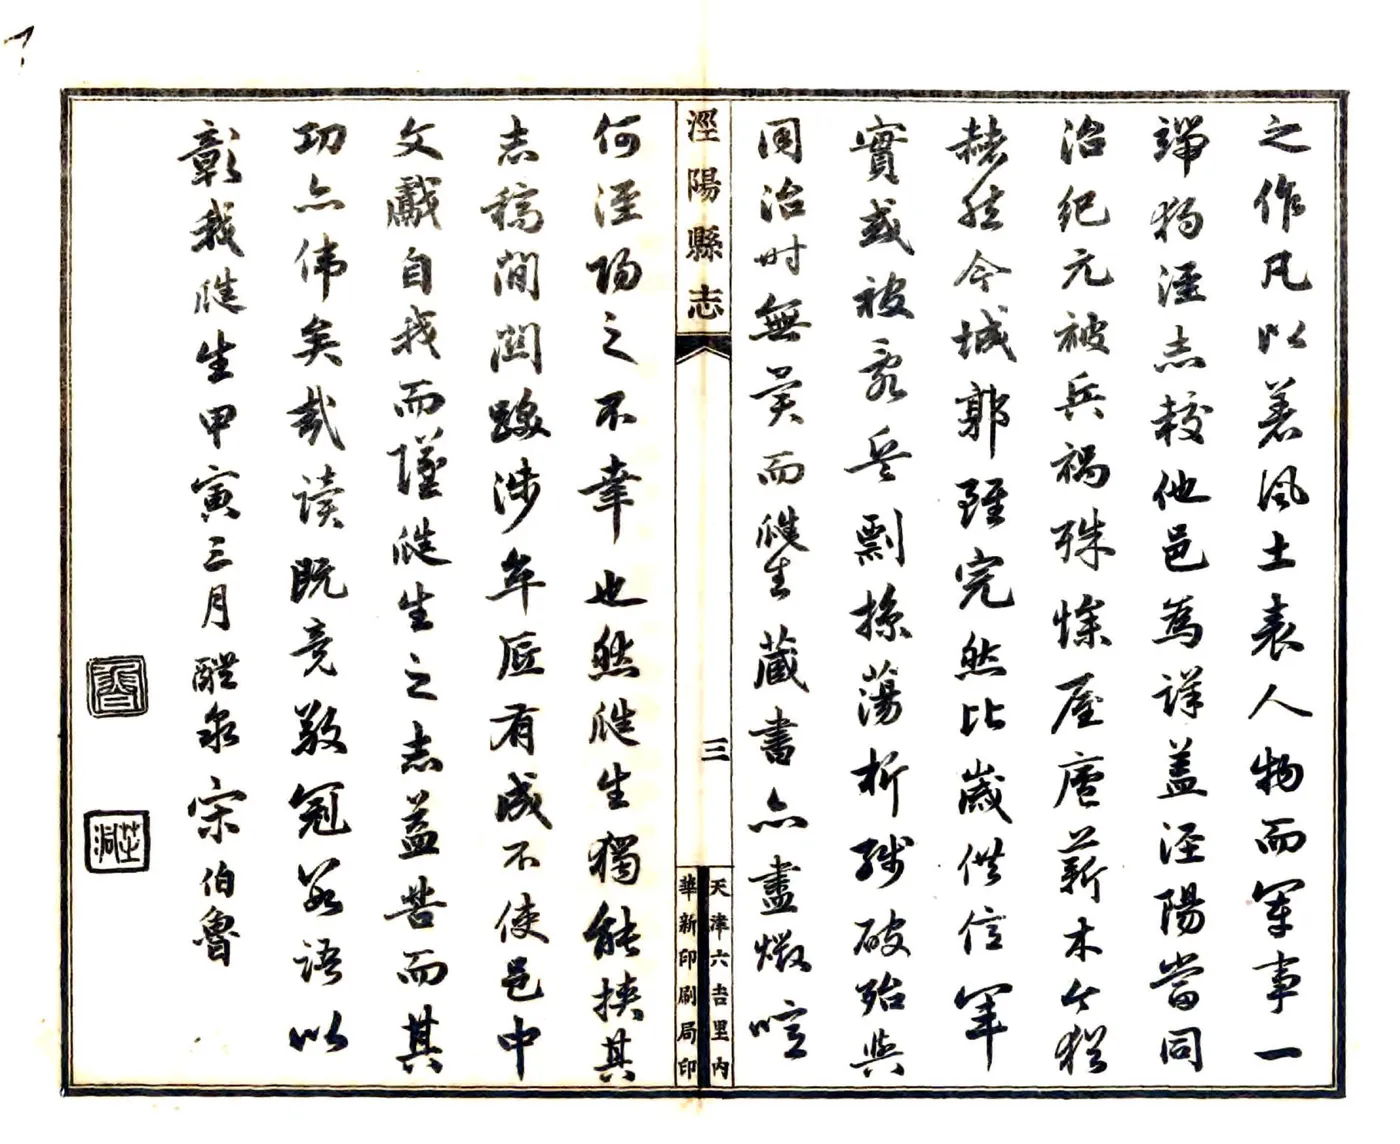 之作凡以著風土表人物而軍事一
端獨涇志較他邑為詳蓋涇陽當同
治紀元被兵禍殊慘屋廬薪木今猶
赫然今城郭雖完然比歲供億軍
實或被亂兵剽掠蕩析殘破殆與
同治时無異而生藏書亦盡燬噫
涇陽縣志
三
天津六吉里內
華新印刷局印
何涇陽之不幸也然生獨能挾其
志稿間関跋涉卒底有成不使邑中
文獻自我而墜生之志益苦而其
功亦偉矣哉读既竟敬冠數語以
彰我生甲寅三月醴泉宋伯魯
芝洞